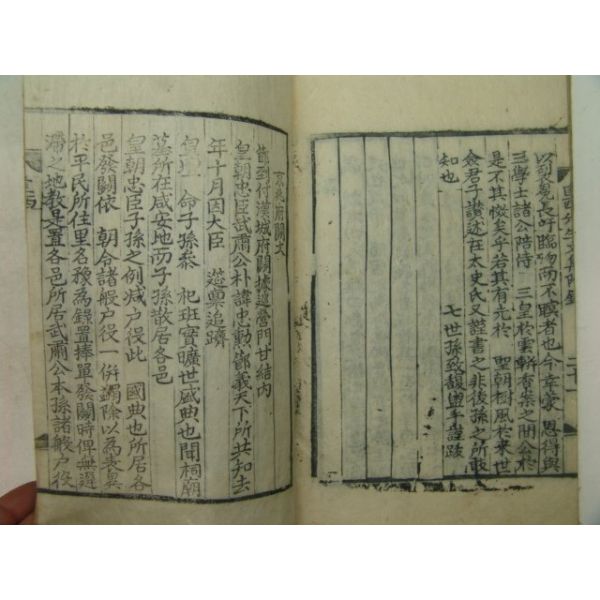 以烈寃長呼臨歿而不瞑者也今幸蒙 恩得與
三學士諸公陪侍 三皇於雲軿香案之間公於
是不其慨矣乎若其有光於 聖朝樹風於來世
僉君子讃述在太史氏又謹書之非後孫之所敢
知也
七世孫致馥盥手謹跋
府關文
皆到付漢城府關據巡營門甘結內
皇朝忠臣武肅公朴諱忠勳節義天下所共知去
年十月因大臣 筵稟追躋
皇 命子孫參 祀班實曠世盛典也聞祠廟
墓所在咸安地而子孫散居各邑
皇朝忠臣子孫之例减户役此 國典也所居各
邑發關依 朝令諸般户役一併蠲除以為表異
於平民所住里名豫為錄置捧單發關時俾無遲
滯之地敎是置各邑所居武肅公本孫諸般户役